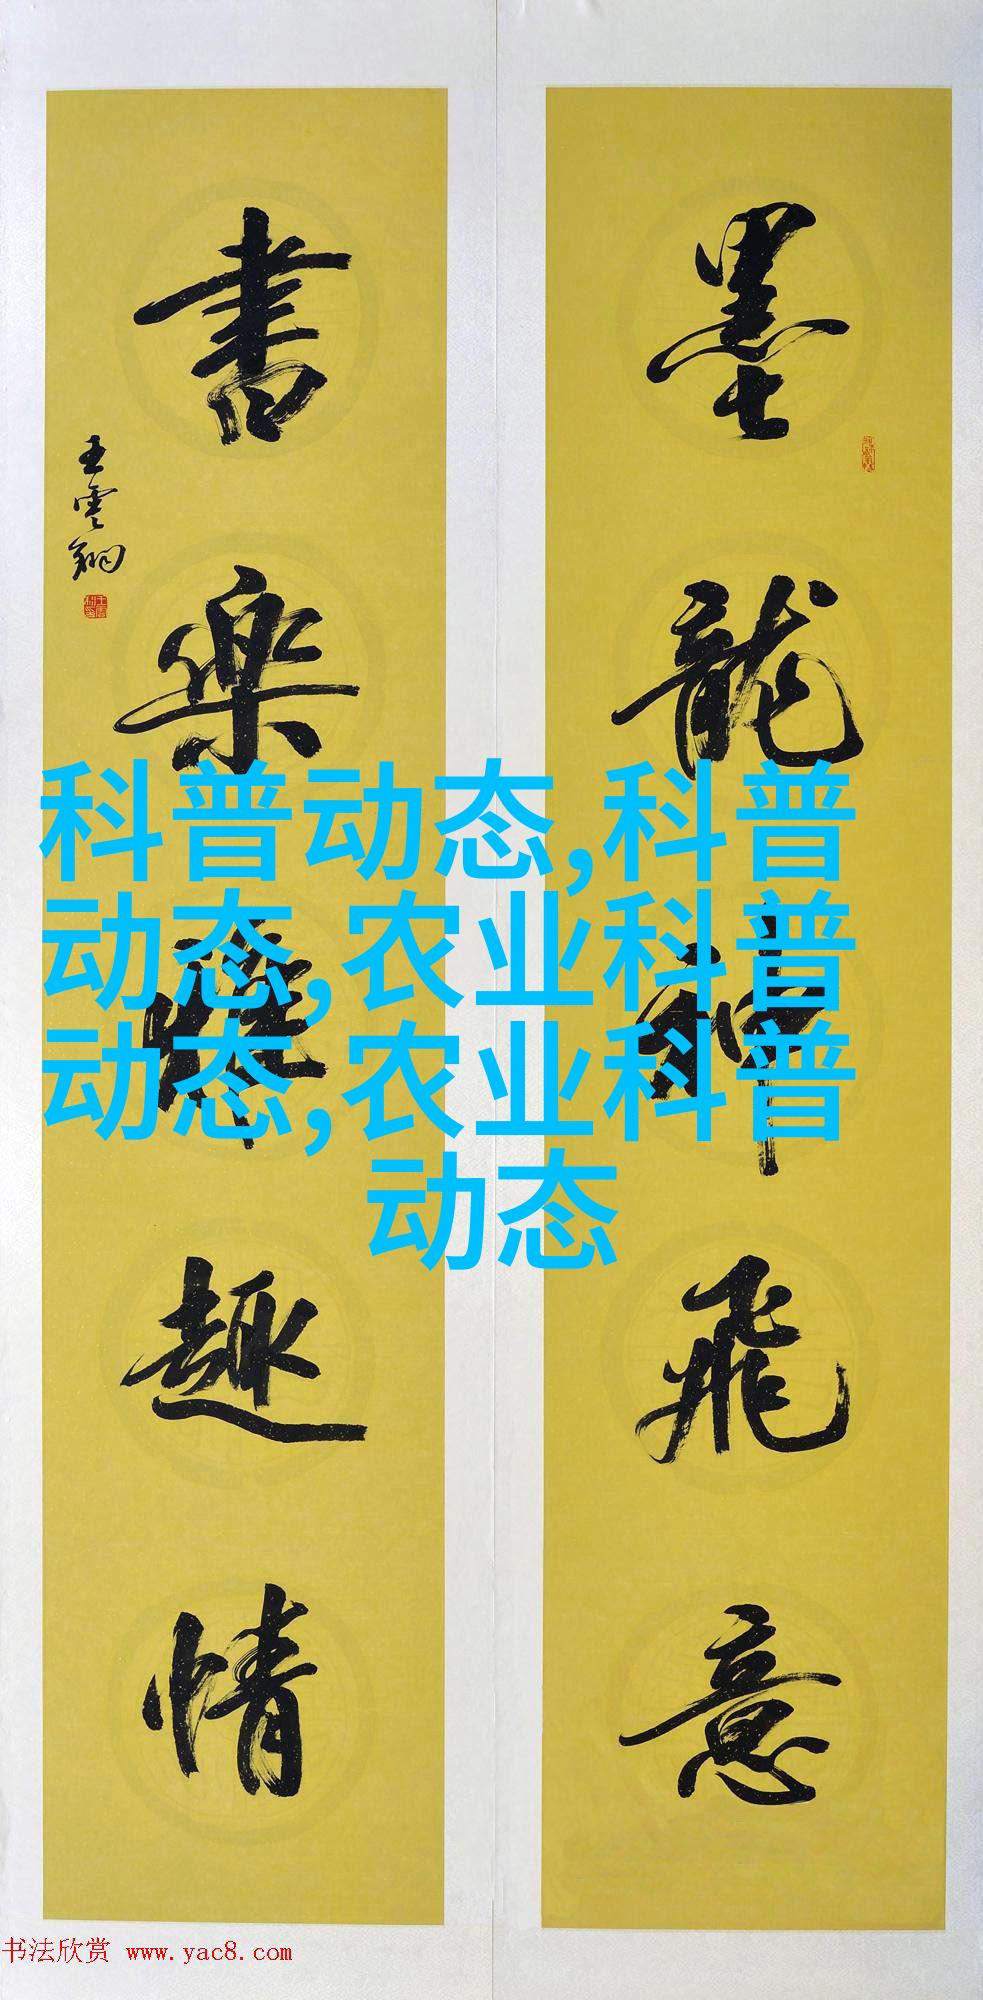 墨龍神飛意
書樂
趣情
王雲翔
科普动态,科普
动态,农业科普
动态,农业科普
动态
书法欣赏 www.yac8.com